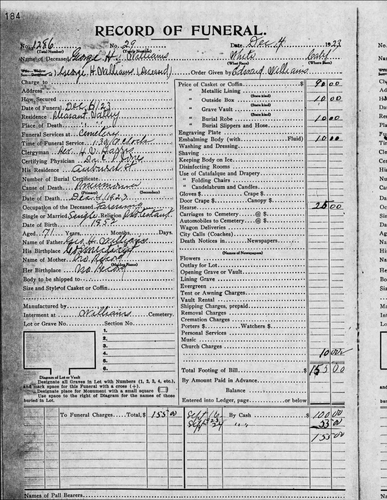 184
RECORD OF FUNERAL.
No. 1286 No. 29 Date Dec 4 1923
(Total Number) (Yearly Number)
Name of Deceased George H. Williams White
George H. Williams (Second) Order Given by Edward Williams
Charge to
Address
How Secured
Date of Funeral Dec 6/23
Residence Pleasant Valley
Place of Death
Funeral Services at Cemetery
Time of Service
Clergyman Rev. H. W.
Certifying Physician Dr. C. P.
His Residence
Number of Burial Certificate
Cause of Death Pneumonia
Date of Death Dec 4 1923
Occupation of the Deceased Farming
Single or Married Single Religion Protestant
Date of Birth 1852
Aged 71 Years, Months, Days.
Name of Father Geo H. Williams
His Birthplace
Name of Mother No Record
Her Birthplace No Record
Body to be shipped to
Size and Style of Casket or Coffin
Manufactured by
Interment at Williams Cemetery.
Lot or Grave No. Section No.
1.
2.
3.
4.
5.
6.
Diagram of Lot or Vault
Designate all Graves in Lot with Numbers (1, 2, 3, 4, etc.), and mark space for this Funeral with a cross (+).
Designate place for Monument with a small square
Use space to the right of Diagram for the names of those buried in Lot.
Price of Casket or Coffin 90 00
" Metallic Lining
" Outside Box 10 00
" Grave Vault
" Burial Robe 10 00
" Burial Slippers and Hose
Engraving Plate
Embalming Body (with Fluid) 10 00
Washing and Dressing
Shaving
Keeping Body on Ice
Disinfecting Rooms
Use of Catafalque and Drapery
" Folding Chairs
" Candelabrum and Candles
Gloves $ Crape $
Door Crape $ Canopy $
Hearse 25 00
Carriages to Cemetery @ $
Automobiles to Cemetery @ $
Wagon Deliveries
City Calls (Coaches)
Death Notices in Newspapers
(Names of Newspapers)
Flowers
Outlay for Lot
Opening Grave or Vault
Lining Grave
Evergreen
Tent or Awning Charges
Vault Rental
Shipping Charges, prepaid
Removal Charges
Cremation Charges
Porters $ Watchers $
Personal Services
Music
Church Charges
10 00
Total Footing of Bill $ 155 00
By Amount Paid in Advance
Balance
Entered into Ledger, page or below.
To Funeral Charges Total, $ 155 00 By Cash 100 00
" " 55 00
155 00
Names of Pall Bearers